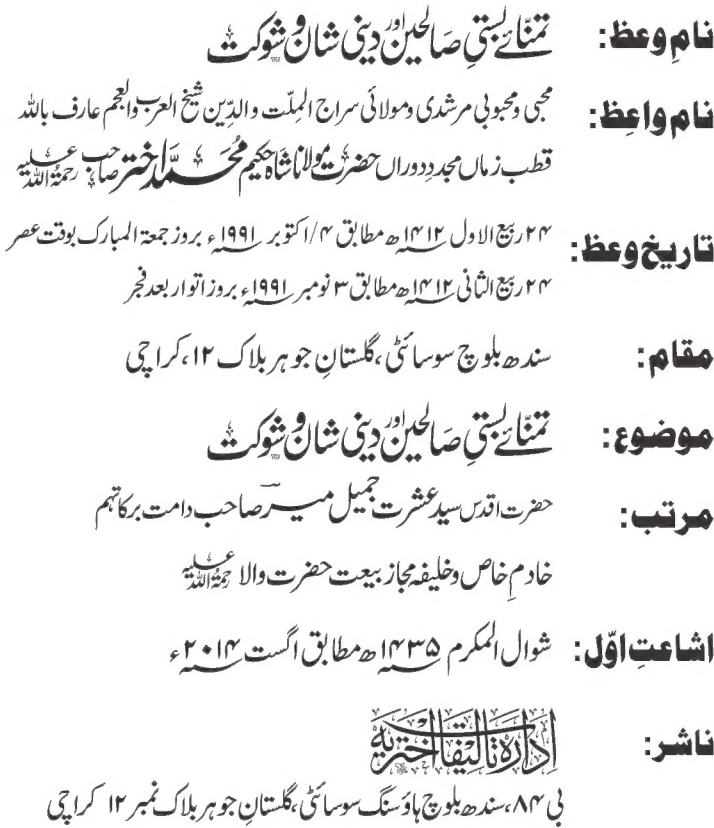 نامِ وعظ: تمنّائے بستیِ صالحین اور دینی شان و شوکت
نام واعِظ: محبی ومحبوبی مرشدی ومولائی سراج المِلّت والدِّین شیخ العرب والعجم عارف باللہ
قطب زماں مجددِ دوراں حضرت مولانا شاہ حکیم محمد اختر صاحب رحمۃ اللہ علیہ
تاریخ وعظ: ۲۴ ربیع الاول ۱۴۱۲ھ مطابق ۴/اکتوبر ۱۹۹۱ء بروز جمعۃ المبارک بوقت عصر
۲۴ ربیع الثانی ۱۴۱۲ھ مطابق ۳ نومبر ۱۹۹۱ء بروز اتوار بعد فجر
مقام: سندھ بلوچ سوسائٹی، گلستانِ جوہر بلاک ۱۲، کراچی
موضوع: تمنّائے بستیِ صالحین اور دینی شان و شوکت
مرتب: حضرت اقدس سید عشرت جمیل میر صاحب دامت برکاتہم
خادمِ خاص وخلیفہ مجاز بیعت حضرت والا رحمۃ اللہ علیہ
اشاعتِ اوّل: شوال المکرم ۱۴۳۵ھ مطابق اگست ۲۰۱۴ء
ناشر: اِدارہ تالیفات اختریہ
بی ۸۴، سندھ بلوچ ہاؤسنگ سوسائٹی، گلستانِ جوہر بلاک نمبر ۱۲ کراچی